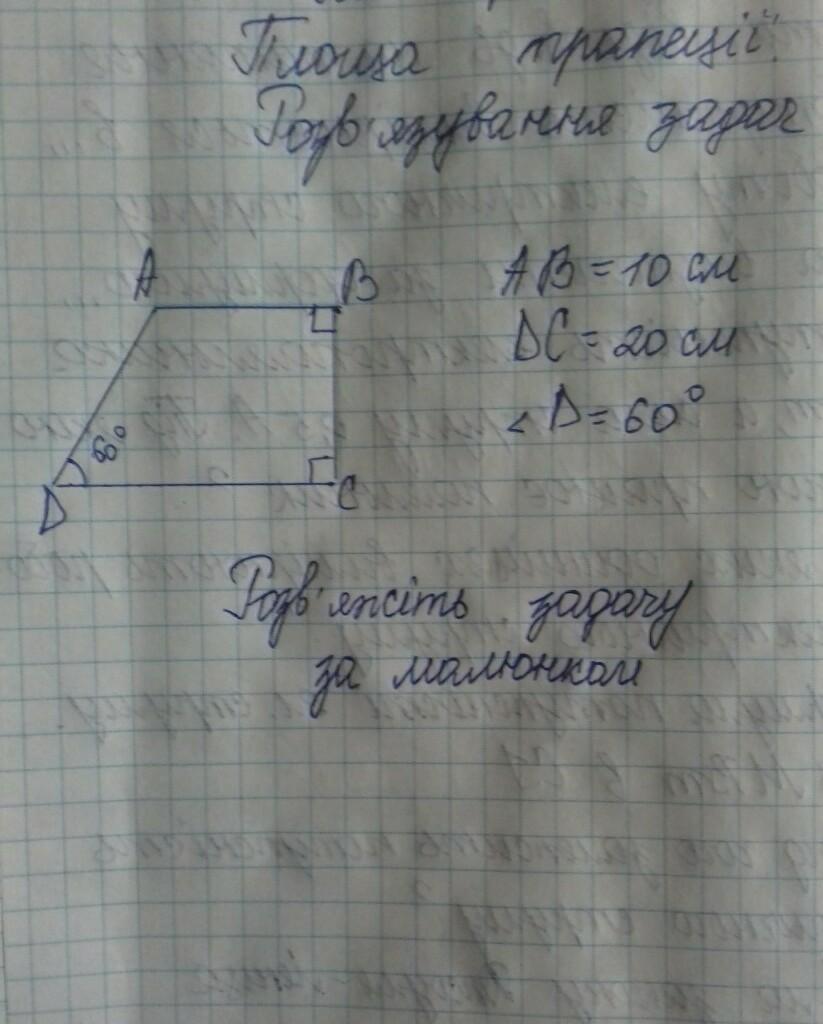 Площа трапеції.
Розв'язування задач
A B
AB = 10 см
DC = 20 см
∠D = 60°
60°
D C
Розв'яжіть задачу
за малюнком